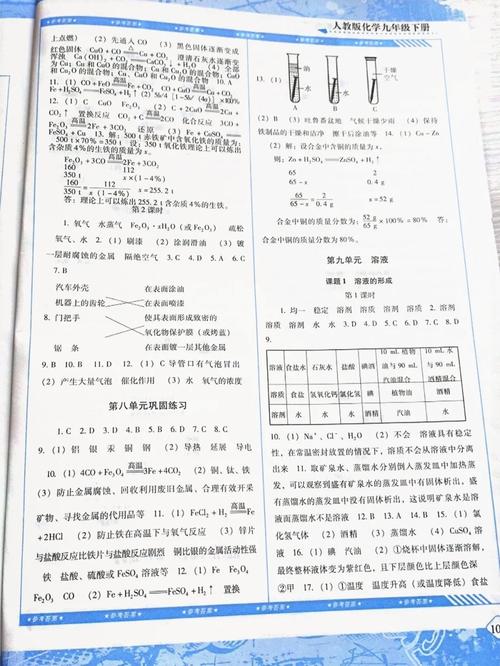 参考答案 参考答案 参考答案 参考答案
人教版化学九年级下册
上点燃) (2) 先通入CO (3) 黑色固体逐渐变成
红色固体 CuO+CO=△=Cu+CO₂ 澄清石灰水逐渐变
Cu和Cu₂O的混合物; Cu、Cu₂O和CuO的混合物; CuO
和Cu₂O的混合物
11. (1) CO+FeO=高温=Fe+CO₂
Fe+H₂SO₄=FeSO₄+H₂↑
12. (1) C CuO Fe₂O₃ (2) C+2CuO=高温=2Cu+
CO₂↑ 置换反应 CO₂+C=高温=2CO 化合反应 3CO+
Fe₂O₃=高温=2Fe+3CO₂ 还原 (3) Fe+CuSO₄=
FeSO₄+Cu 13. 解: 500 t赤铁矿中含氧化铁的质量为:
500 t×70%=350 t。设: 350 t氧化铁理论上可以炼出
含杂质4%的生铁的质量为x。
Fe₂O₃+3CO=高温=2Fe+3CO₂
160 112
350 t x×(1-4%)
160/350 t=112/x(1-4%) x=255.2 t
答: 理论上可以炼出255.2 t含杂质4%的生铁。
第2课时
1. 氧气 水蒸气 Fe₂O₃·xH₂O (或Fe₂O₃) 疏松
氧气、水 2. (1) 刷漆 (2) 涂润滑油 (3) 镀
一层耐腐蚀的金属 隔绝空气 3. C 4. D 5. A 6. A
7. B
汽车外壳 在表面涂油
机器上的齿轮 在表面喷漆
8. 门把手 使其表面形成致密的
氧化物保护膜 (或烤蓝)
锯条 在表面镀一层其他金属
9. B 10. B 11. D 12. (1) C导管口有气泡冒出
(2) 产生大量气泡 催化作用 (3) 水 氧气的浓度
第八单元巩固练习
1. C 2. D 3. D 4. B 5. C 6. D 7. B 8. C
9. (1) 铝 银 汞 铜 钢 (2) 导热 延展 导电
10. (1) 4CO+Fe₃O₄=高温=3Fe+4CO₂ (2) 铜、钛、铁
(3) 防止金属腐蚀、回收利用废旧金属、合理有效开采
矿物、寻找金属的代用品等 11. (1) FeCl₂+H₂=高温=Fe
+2HCl (2) 防止铁在高温下与氧气反应 (3) 锌片
与盐酸反应比铁片与盐酸反应剧烈 铜比银的金属活动性强
铁 盐酸、硫酸或FeSO₄溶液等 12. (1) Fe
Fe₂O₃ CO (2) Fe+H₂SO₄=FeSO₄+H₂↑ 置换
13. (1)
干燥
空气
A B C
(2) B (3) 吐鲁番盆地 气候干燥少雨 (4) 保持
铁制品的干燥和洁净 擦干后涂油等 14. (1) Cu-Zn
(2) 解: 设合金中含铜的质量为x。
则: Zn+H₂SO₄=ZnSO₄+H₂↑
65 2
65-x 0.4 g
65/65-x=2/0.4 g x=52 g
合金中铜的质量分数为: 52 g/65 g×100%=80% 答:
合金中铜的质量分数为80%。
第九单元 溶液
课题1 溶液的形成
第1课时
1. 均一 稳定 溶剂 溶质 溶剂 溶质 2. 溶剂
溶剂 水 水 3. D 4. D 5. D 6. C 7. D 8. D
9.
溶液 食盐水 石灰水 盐酸 碘酒 10 mL植物油与90 mL汽油混合 10 mL水与90 mL酒精混合
溶质 食盐 氢氧化钙 氯化氢 碘 植物油 水
溶剂 水 水 水 酒精 汽油 酒精
10. (1) Na⁺、Cl⁻、H₂O (2) 不会 溶液具有稳定
性,在常温密封放置的情况下,溶质不会从溶液中分离
出来 11. 取矿泉水、蒸馏水分别倒入蒸发皿中加热蒸
发,可以观察到盛有矿泉水的蒸发皿中有固体析出,盛
有蒸馏水的蒸发皿中没有固体析出。这说明矿泉水是溶
液而蒸馏水不是溶液 12. B 13. B 14. C
15. (1) 碘酒 (2) 酒精 (3) 蒸馏水 (4) CuSO₄溶
液 16. (1) 碘 汽油 (2) ①烧杯中固体逐渐溶解,
最终整杯液体变为紫红色,且下层颜色比上层颜色深
②甲 17. (1) ①温度 温度升高(或温度降低)食盐
参考答案 参考答案 参考答案 参考答案
10